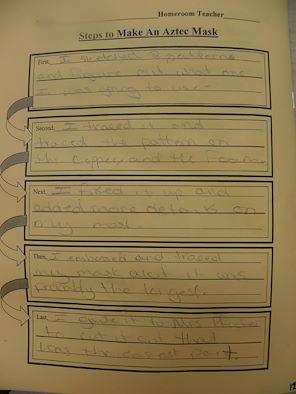 Homeroom Teacher
Steps to Make An Aztec Mask
First, I sketched 3 patterns
and figure out what one
I was going to use.
Second, I traced it and
traced the pattern on
the copper and the Foam.
Next, I fixed it up and
added more details on
my mask.
Then, I embossed and traced
my mask alot it was
the longest.
Last, I gave it to Mrs.
to cut it out that
was the easest part.